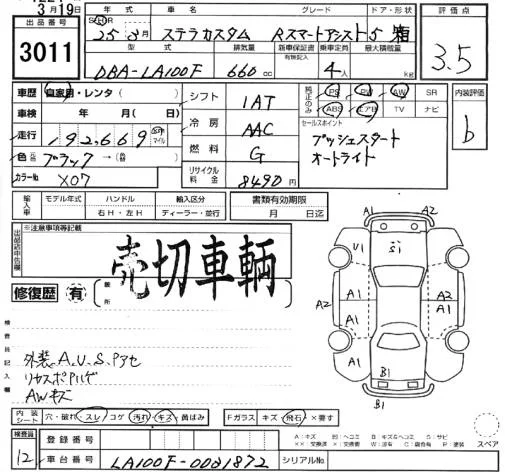 3月19日
出品番号 3011
年式 車名 グレード ドア・形状 評価点
H25年3月 ステラカスタム Rスマートアシスト 5 箱 3.5
型式 排気量 新車保証書 有無記入 乗車定員 最大積載量
DBA-LA100F 660cc 4人 kg
車歴 自家用・レンタ( ) シフト 1AT
純正のみ PS PW AW SR ABS エアB TV ナビ
内装評価 b
車検 年 月( 日) 冷房 AAC
セールスポイント
プッシュスタート
オートライト
走行 192,669 km マイル
色 ブラック→( ) 燃料 G
カラーNo X07 リサイクル料金 8490円
輸入車 モデル年式 ハンドル 輸入区分 書類有効期限
右H・左H ディーラー・並行 月 日迄
出品店申告欄 ※注意事項等記載
売切車輌
修復歴 有 箇所
検査員記入欄
外装A.U.S.Pアセ
リヤスポPハゲ
AWキズ
A1 A2
U1 S1
A1 A1
A2 A2
A1 A1
B1
B1
内装シート 穴・破れ・スレ コゲ 汚れ・キズ・黄ばみ Fガラス キズ・飛石・×要す
A:キズ E:エクボ B:キズ&ヘコミ S:サビ
××:交換済 ×:要交換 W:波有 C:腐食有 P:塗装 スペア
検査員 12 登録番号
車台番号 LA100F-0021872 シリアルNo